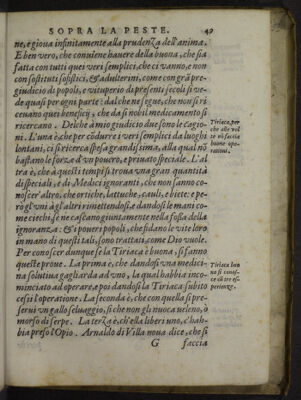 SOPRA LA PESTE. 49
ne, e gioua infinitamente alla prudenza dell'anima.
E ben vero, che conuiene hauere della buona, che sia
fatta con tutti quei veri semplici, che ci vanno, e non
con sostituti sofistici, & adulterini, come con grã pre-
giudicio di popoli, e vituperio di presenti secoli si ve-
de quasi per ogni parte: dal che ne segue, che noi si ri
ceuano quei beneficij, che da sì nobil medicamento si
ricercano. Del che à mio giudicio due sono le cagio-
ni. L'una è, che per cõdurre i veri semplici da luoghi
lontani, ci si ricerca spesa grandissima, alla qual nõ
bastano le forze d'vn pouero, e priuato speciale. L'al
tra è, che à questi tempi si troua vna gran quantità
di speciali, e di Medici ignoranti, che non sanno co-
noscer'altro, che ortiche, lattuche, cauli, e biete: e pe-
rò gl'vni à gl'altri rimettendosi, e dandosi le mani co-
me ciechi, se ne cascano giuntamente nella fossa della
ignoranza: & i poueri popoli, che fidano le vite loro
in mano di questi tali, sono trattati, come Dio vuole.
Per conoscer dunque se la Tiriaca è buona, si fanno
queste proue. La prima è, che dandosi vna medici-
na solutiua gagliarda ad vno, la qual habbia inco-
minciato ad operare, e poi dandosi la Tiriaca subito
cessi l'operatione. La seconda è, che con quella si pre-
serui vn gallo seluaggio, sì che non gli nuoca ueleno, ò
morso di serpe. La terza è, ch'ella liberi uno, c'hab-
bia preso l'Opio. Arnaldo di Villa noua dice, che si
G faccia
Tiriaca, per
che alle vol
te nõ faccia
buone ope-
rationi.
Tiriaca buo
na si conos-
ce cõ tre es-
perienze.